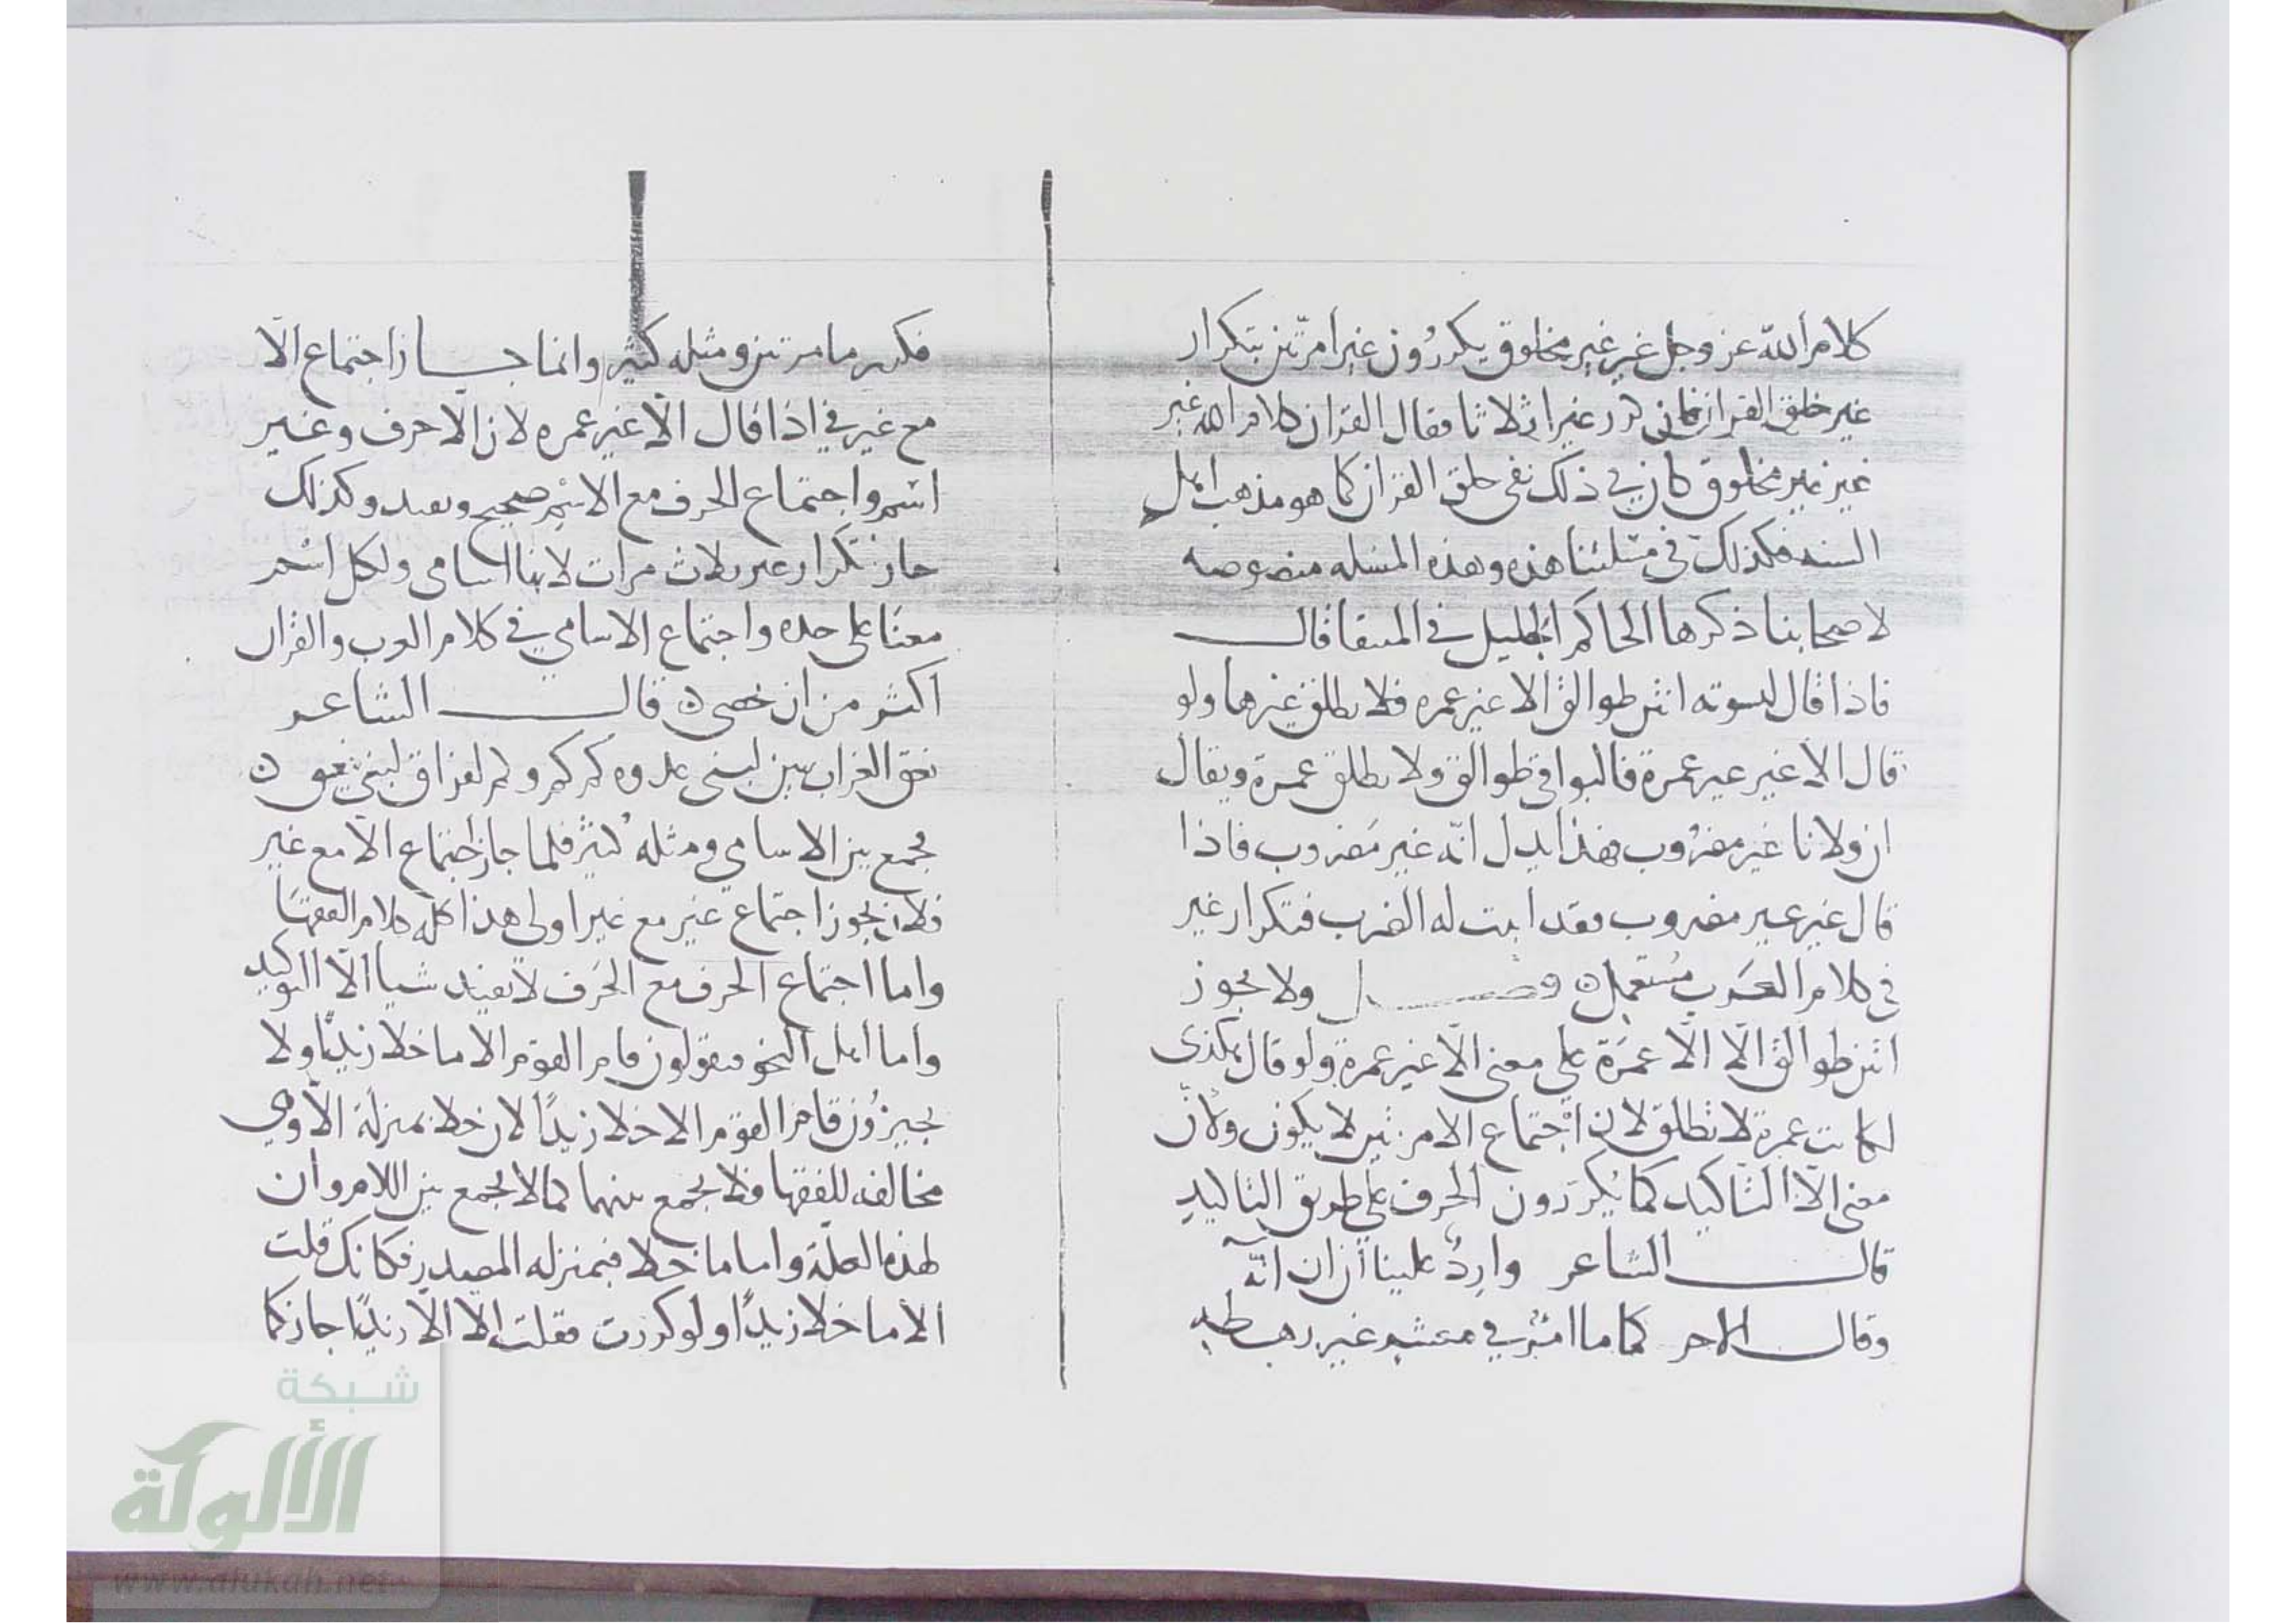 كلام الله عز وجل غير غير مخلوق يكررون غيرا مرّتين بتكرار
غير خلق القران فان كرر غيرا ثلاثا فقال القران كلام الله غير
غير غير مخلوق كان في ذلك نفي خلق القران كما هو مذهب اهل
السنه فكذلك في مسئلتنا هذه وهذه المسله منصوصه
لاصحابنا ذكرها الحاكم الجليل في المنتقا قال
فاذا قال لنسوته انتن طوالق الا غير عمره فلا يطلق غيرها ولو
قال الا غير غير عمرة فالبواقي طوالق ولا يطلق عمرة ويقال
ان ولانا غير مضروب فهذا يدل انّه غير مضروب فاذا
قال غير غير مضروب فقد اثبت له الضرب فتكرار غير
في كلام العرب مستعمل فصل ولا يجوز
انتن طوالق الّا الّا عمرة على معنى الّا غير عمرة ولو قال هكذى
لكانت عمرة لا تطلق لان اجتماع الامرين لا يكون ولان
معنى الّا التاكيد كما يكررون الحرف على طريق التاكيد
قال الشاعر واردٌ علينا ان ان انّه
وقال الاخر كما ما امرؤ في معشر غير رهطه
فكرر ما مرتين ومثله كثير وانما جاز اجتماع الّا
مع غير في اذا قال الّا غير عمره لان الا حرف وغير
اسم واجتماع الحرف مع الاسم صحيح وكذلك
جاز تكرار غير ثلاث مرات لانها اسامى ولكل اسم
معنًا على حده واجتماع الاسامي في كلام العرب والقران
اكثر من ان تحصى قال الشاعر
نعق الغراب ببين لبنى غدوه كم كم وكم لفراق لبنى ينعق
فجمع بين الاسامي ومثله كثير فلما جاز اجتماع الّا مع غير
فلان يجوز اجتماع غير مع غير اولى هذا كله كلام الفقها
واما اجتماع الحرف مع الحرف لا يفيد شيا الّا التوكيد
واما اهل النحو فيقولون قام القوم الا ما خلا زيدًا ولا
يجيزون قام القوم الا خلا زيدًا لان خلا بمنزلة الّا وهي
مخالفه للفقها فلا يجمع بينهما كما لا يجمع بين اللام وان
لهذه العلة واما ما خلا فبمنزله المصدر فكانك قلت
الا ما خلا زيدًا ولو كررت فقلت الا الّا زيدًا جاز كما
شبكة
الألوكة
www.alukah.net